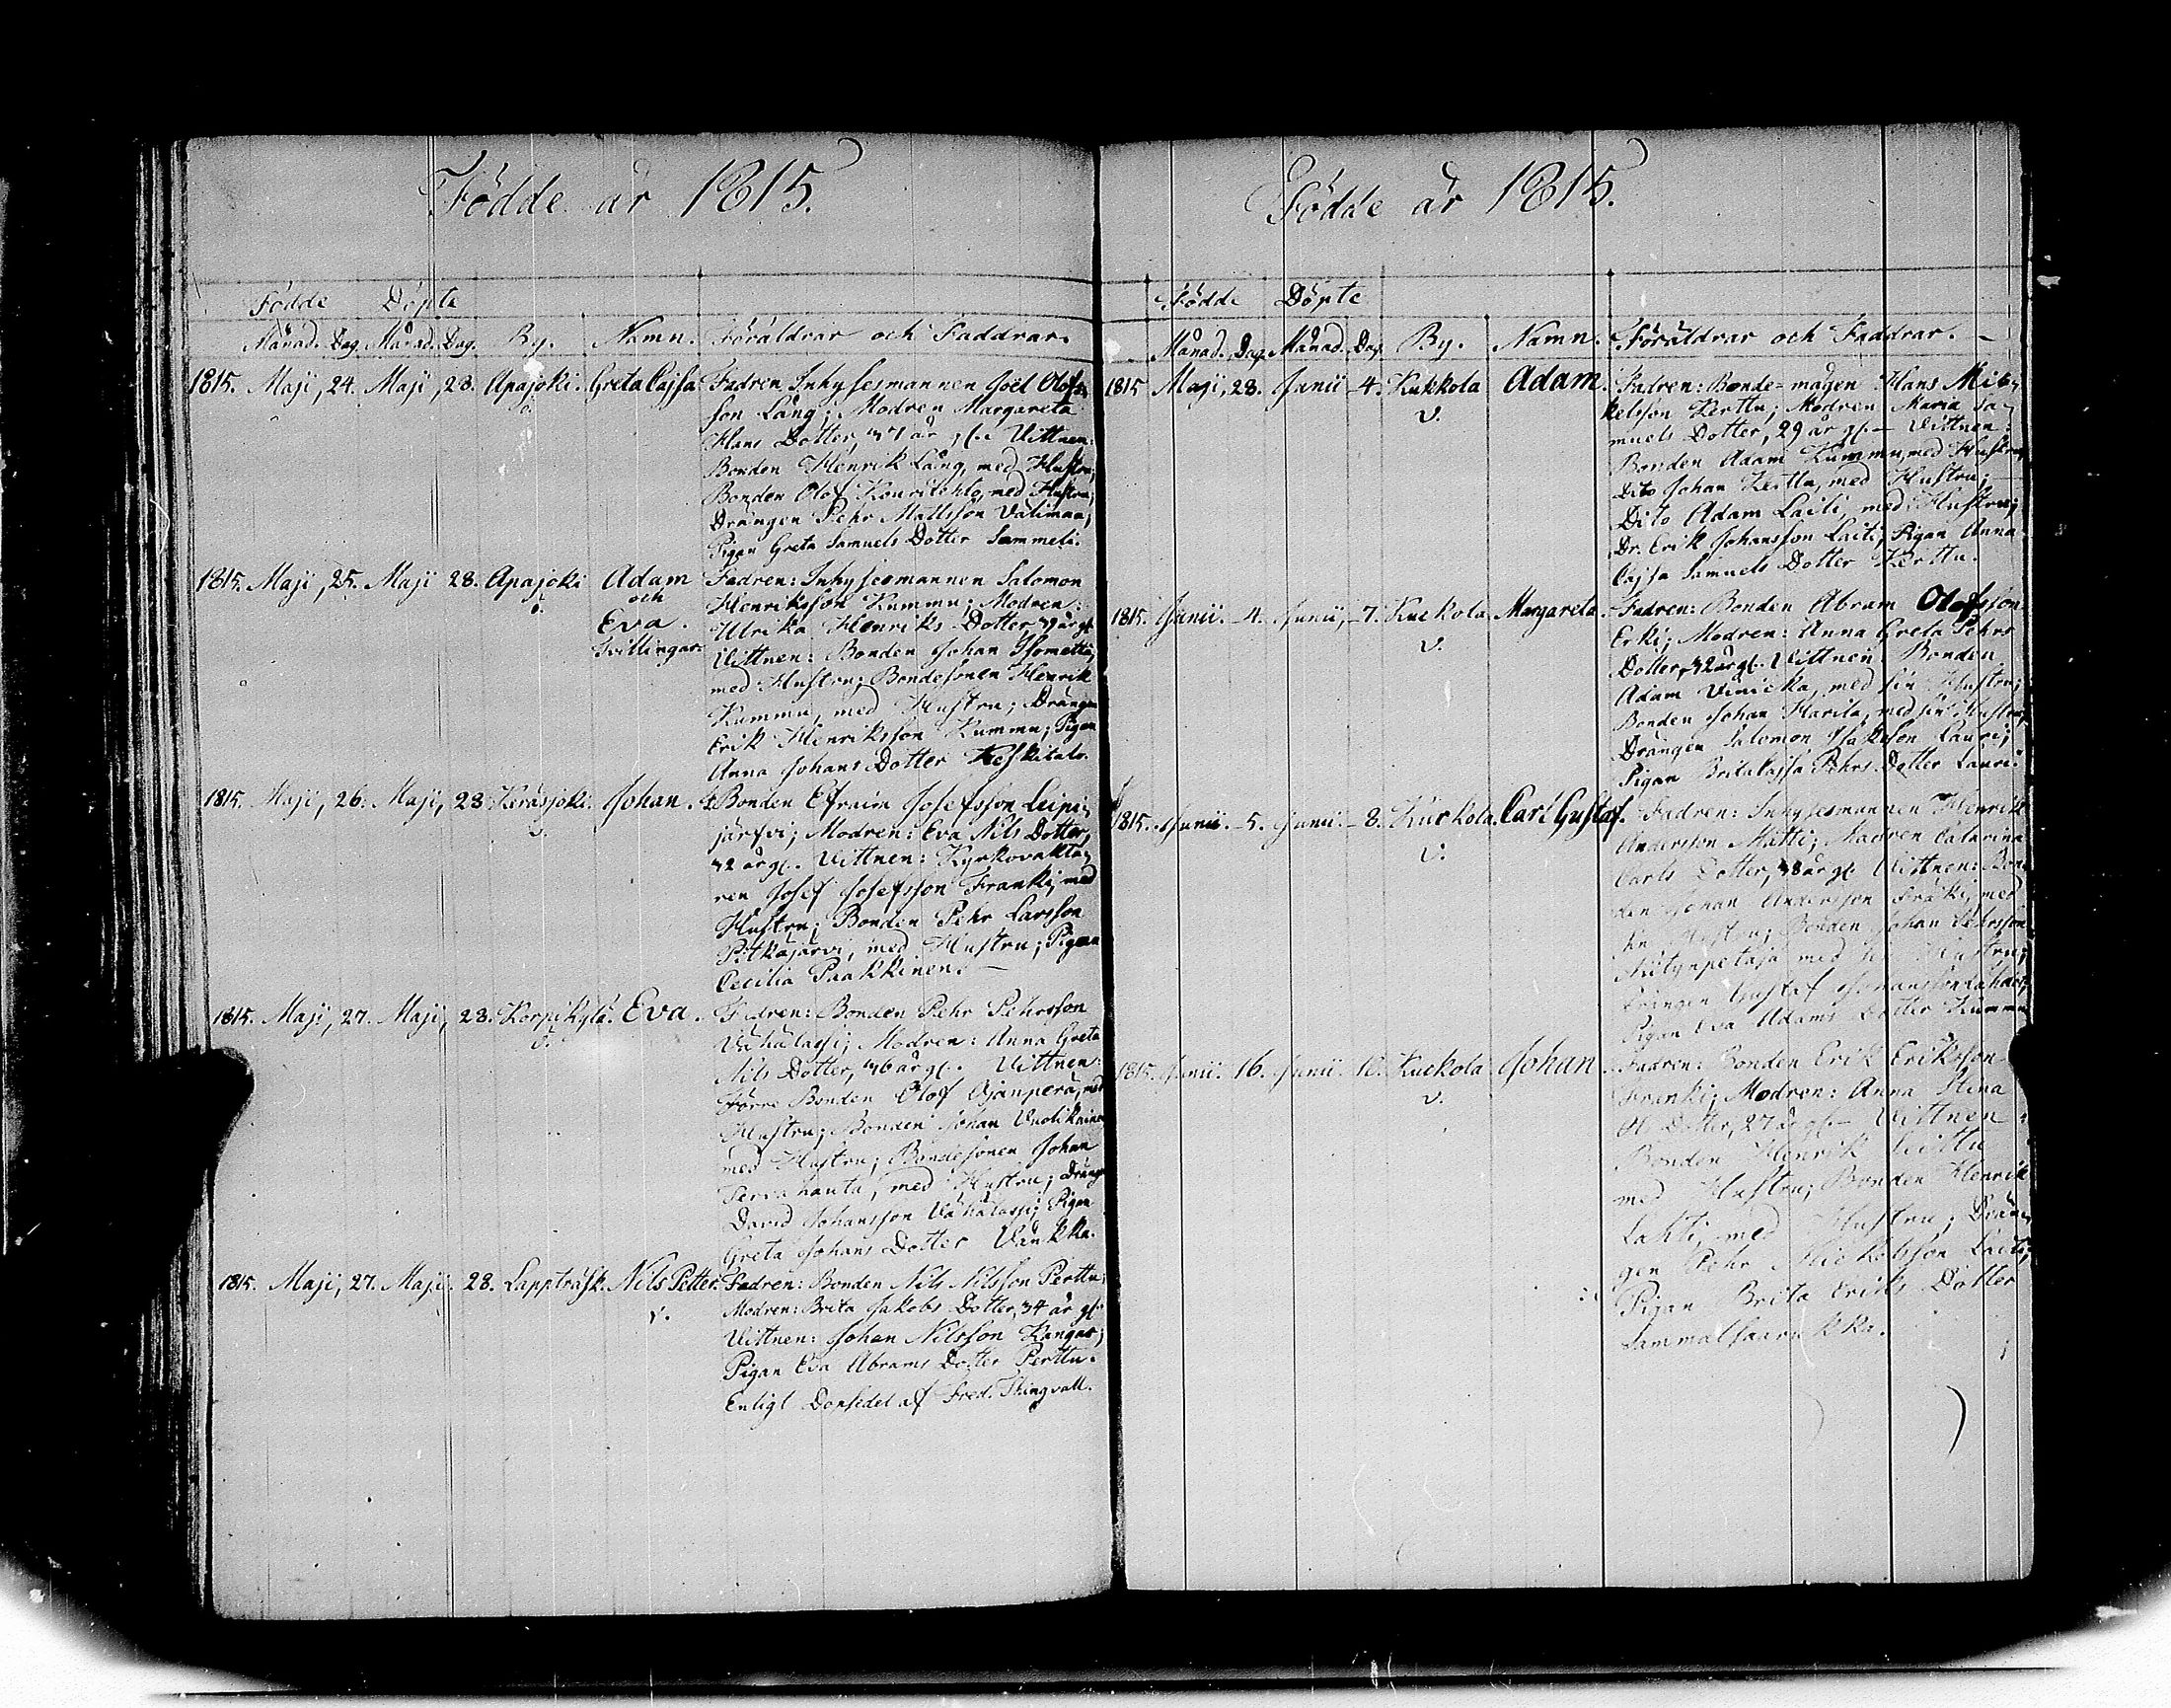 Födde år 1815.
Födde Döpte
Månad. Dag. Månad. Dag. By. Namn. Föräldrar och Faddrar.
1815. Maji, 24. Maji, 28. Apajoki. ö. Greta Cajsa. Fadren Inhysesmannen Joël Olofs-
son Lång; Modren Margareta
Hans Dotter, 37 år gl. Vittnen:
Bonden Henrik Lång, med Hustru;
Bonden Olof Kourilehto, med Hustru;
Drängen Pehr Mattsson Välimaa;
Pigan Greta Samuels Dotter Sammeli.
1815. Maji, 25. Maji 28. Apajoki ö. Adam Fadren: Inhysesmannen Salomon
och Henriksson Kummu; Modren:
Eva. Ulrika Henriks Dotter 39 år gl.
Tvillingar. Vittnen: Bonden Johan Isometsä,
med Hustru; Bondesonen Henrik
Kummu, med Hustru; Drängen
Erik Henriksson Kummu; Pigan
Anna Johans Dotter Keskitalo.
1815. Maji, 26. Maji, 28. Keräsjoki. ö. Johan. F. Bonden Efraim Josefsson Leipi-
järfvi; Modren: Eva Nils Dotter,
32 år gl. Vittnen: Kyrkovakta-
ren Josef Josefsson Franki, med
Hustru; Bonden Pehr Larsson
Pitkäjärvi, med Hustru; Pigan
Cecilia Paakkinen.
1815. Maji, 27. Maji, 28. Korpikylä. ö. Eva. Fadren: Bonden Pehr Pehrsson
Vähälassi; Modren: Anna Greta
Nils Dotter, 36 år gl. Vittnen:
Förre Bonden Olof Ojanperä, med
Hustru; Bonden Johan Vuolikainen
med Hustru; Bondesonen Johan
Tervahauta, med Hustru; Dräng
David Johansson Vähälassi; Pigan
Greta Johans Dotter Vänkkä.
1815. Maji, 27. Maji. 28. Lappträsk. Nils Petter. v. Fadren: Bonden Nils Nilsson Perttu;
Modren: Brita Jakobs Dotter, 34 år gl.
Vittnen: Johan Nilsson Kangas;
Pigan Eva Abrams Dotter Perttu.
Enligt Dopsedel af Fred. Thingvall.
Födde år 1815.
Födde Döpte
Månad. Dag. Månad. Dag. By. Namn. Föräldrar och Faddrar.
1815 Maji, 28. Junii 4. Kukkola v. Adam. Fadren: Bonde-mågen Hans Mi-
kelsson Kerttu; Modren Maria Sa-
muels Dotter, 29 år gl. Vittnen:
Bonden Adam Kummu, med Hustru;
Dito Johan Keittu, med Hustru;
Dito Adam Laiti, med Hustru;
Dr. Erik Johansson Laiti; Pigan Anna
Cajsa Samuels Dotter Kerttu.
1815. Junii. 4. Junii, 7. Kuckola v. Margareta. Fadren: Bonden Abram Olofsson
Erki; Modren: Anna Greta Pehrs
Dotter, 32 år gl. Vittnen: Bonden
Adam Vinicka, med sin Hustru;
Bonden Johan Harila, med sin Hustru;
Drängen Salomon Isaksson Lauri;
Pigan Brita Cajsa Pehrs Dotter Lauri.
1815. Junii. 5. Junii. 8. Kuckola. v. Carl Gustaf. Fadren: Inhysesmannen Henrik
Andersson Matti; Modren Catarina
Carls Dotter, 38 år gl. Vittnen: Bon-
den Johan Andersson Fräki, med
sin Hustru; Bonden Johan Pehrsson
med sin Hustru;
Drängen Gustaf Johansson
Pigan Eva Adams Dotter Kummu
1815. Junii. 16. Junii. 18. Kuckola v. Johan. Fadren: Bonden Erik Eriksson
Franki; Modren: Anna Stina
Ol. Dotter, 27 år gl. Vittnen:
Bonden Henrik Keittu
med Hustru; Bonden Henrik
Lahti, med Hustru; Drän-
gen Pehr Mickelsson Laiti;
Pigan Brita Eriks Dotter
Sammalsaarukka.